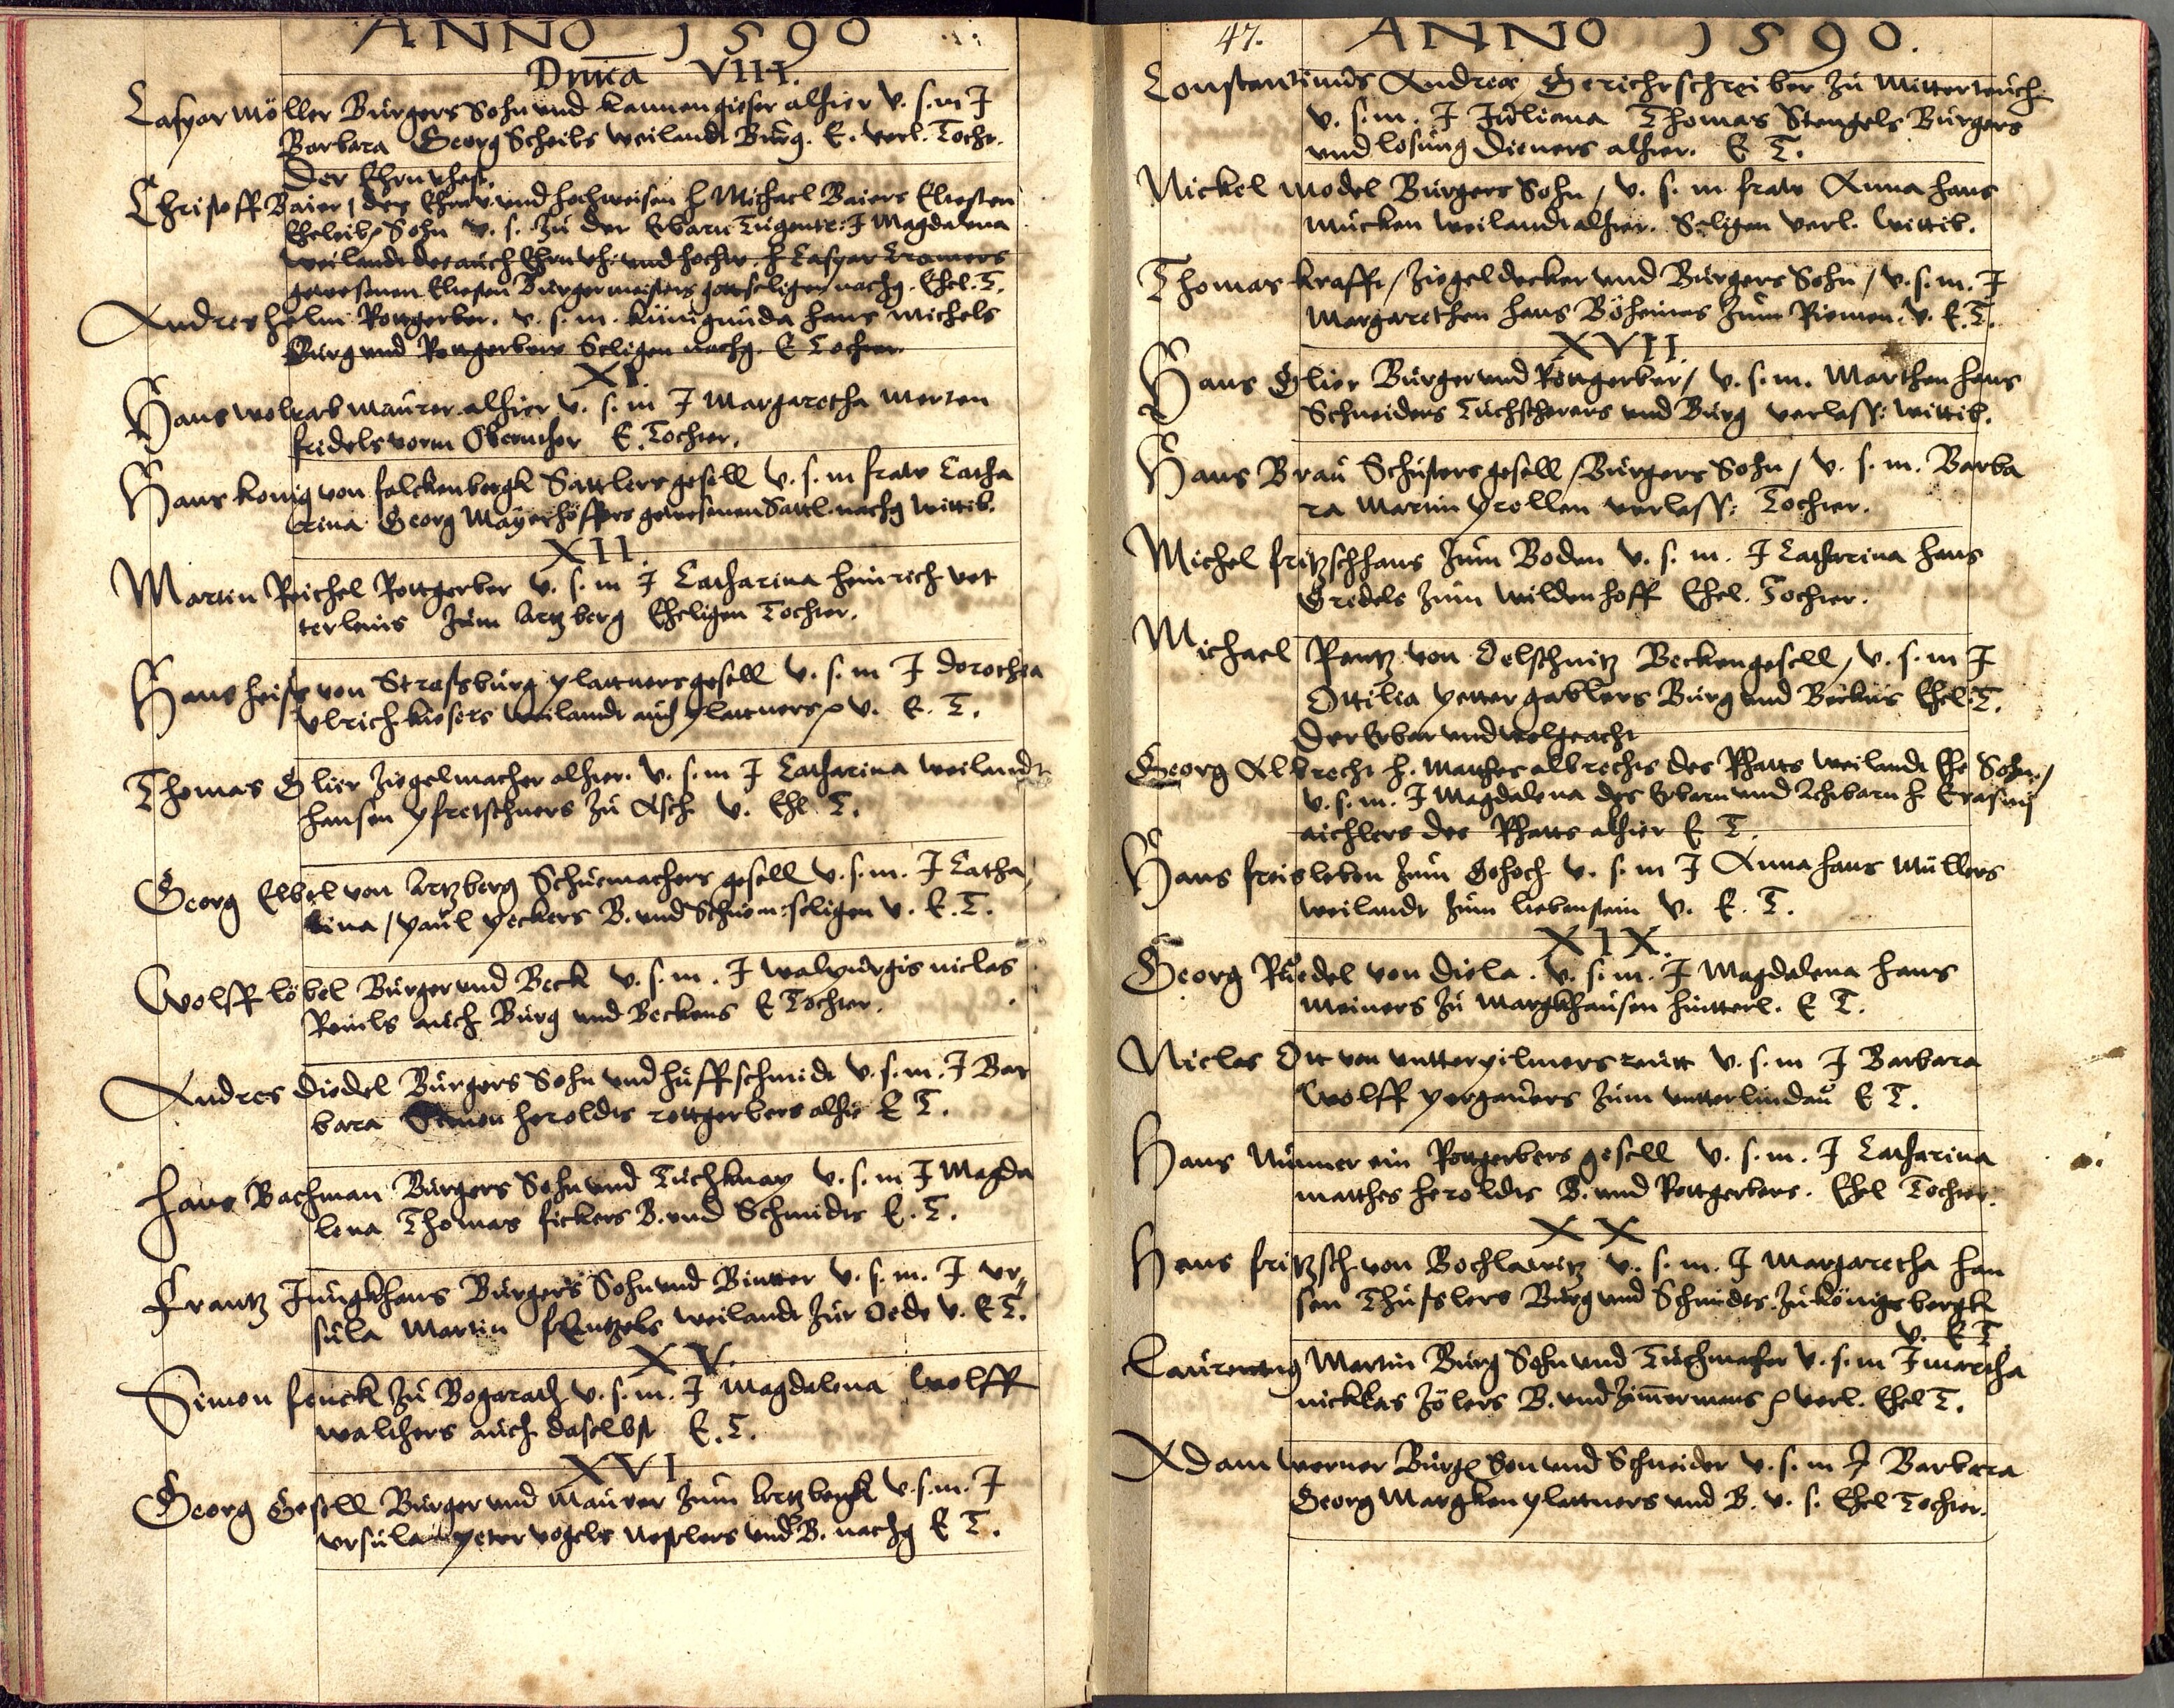 ANNO 1590
Dnica VIII.
Caspar Möller Burgers Sohn und kannengieser alhier v. s. m J
Barbara Georg Scheibs weilandt Burg. E. verl. Tocht.
Der Ehrnvhest
Christoff Baier, des Ehrnv. und hochweisen H Michael Baiers Eltesten
Eheleib. Sohn v. s. zu der Erbarn Tugentr. J Magdalena
weilandt des auch Ehrnvh. und hochw. H Caspar Cramers
gewesenen Eltesten Burgermeisters gottseligen nachg. Ehel. T.
Andres helm Rottgerber. v. s. m. kunigunda hans Michels
Burg und Rottgerbers Seligen nachg. E Tochter.
XI.
Hans wolrab maurer alhier v. s. m J Margaretha merten
fridels vorm Obernthor E. Tochter.
Hans konig von falckenbergk Sattlers gesell v. s. m fraw Catha
rina Georg Mayerhöffers gewesenen Sattl. nachg wittib.
XII.
Martin Reichel Rottgerber v. s. m J Catharina heinrich vet
terleins zum Artzberg Eheligen Tochter.
Hans von Strassburg plattners gesell v. s. m J Dorothea
Ulrich kiesers weilandt auch plattners v. E. T.
Thomas Glier ziegelmacher alhier. v. s. m J Catharina weilandt
hansen pfretschners zu Asch v. Ehl T.
Georg Elbel von Artzberg Schuemachers gesell v. s. m. J Catha
rina, paul peckers B. und Schuem: seligen v. E. T.
Wolff löbel Burger und Beck v. s. m. J walpurgis niclas
Reinls auch Burg und Beckens E Tochter.
Andres Diedel Burgers Sohn und huffschmidt v. s. m. J Bar
bara Simon heroldts rottgerbers alhie E T.
Hans Bachman Burgers Sohn und Tuchknap v. s. m J Magda
lena Thomas fickers B. und Schmidts E. T.
Frantz Jungkhans Burgers Sohn und Bintter v. s. m. J Ur
sula Martin weilandt zur Oede v. E T.
XV.
Simon fenck zu Bogarath v. s. m. J Magdalena Wolff
walthers auch daselbst E. T.
XVI.
Georg Gesell Burger und Maurer zum Artzbergk v. s. m. J
Ursula peter vogels Nestlers und B. nachg E T.
47. ANNO 1590.
Constantinus Andreæ Gerichtschreiber zu Mitterteuch
v. s. m. J Juliana Thomas Stengels Burgers
und losung Dieners alhier. E T.
Nickel Model Burgers Sohn, v. s. m fraw Anna hans
Mucken weilandt alhier. Seligen verl. Wittib.
Thomas krafft, ziegeldecker und Burgers Sohn, v. s. m. J
Margarethen hans Böheims zum Riemen. v. E. T.
XVII.
Hans Glier Burger und Rottgerber, v. s. m. Marthen hans
Schneiders Tuchscherers und Burg verlass: wittib.
Hans Brau Schusters gesell, Burgers Sohn, v. s. m. Barba
ra Martin prollen verlass: Tochter.
Michel fritzschhans zum Boden v. s. m. J Catharina hans
Gredels zum Wildenhoff Ehel. Tochter.
Michael Rentz von Oelschnitz Beckengesell, v. s. m J
Ottilia petter gablers Burg und Beckns Ehel. T.
Der Erbar und wolgeacht
Georg Albrecht H. Matthes albrechts des Rhatts weilandt Ehe Sohn,
v. s. m. J Magdalena des Erbarn und Achtbarn H. Erasmj
aichlers des Rhatts alhier E T.
Hans freisleben zum Gohoch v. s. m J Anna hans Müllers
weilandt zum liebenstein v. E. T.
XIX.
Georg Ruedel von Diela. v. s. m. J Magdalena hans
Meiners zu Margkhausen hintterl. E T.
Niclas Ott von untterpilmersreutt v. s. m J Barbara
Wolff pergauers zum untterlindau E T.
Hans Nunner ein Rottgerbers gesell v. s. m. J Catharina
matthes heroldts B. und Rottgerbers. Ehel Tochter.
XX
Hans fritzsch von Rochlawitz v. s. m. J Margaretha han
sen Thusslers Burg und Schmidts. zu königsbergk
v. E T
Laurentius Martin Burg Sohn und Tuchmacher v. s. m J martha
nicklas zölers B. und Zimmermans verl. Ehel T.
Adam Werner Burgs Son und Schneider v. s. m J Barbara
Georg Margken plattners und B. v. s. Ehel Tochter.